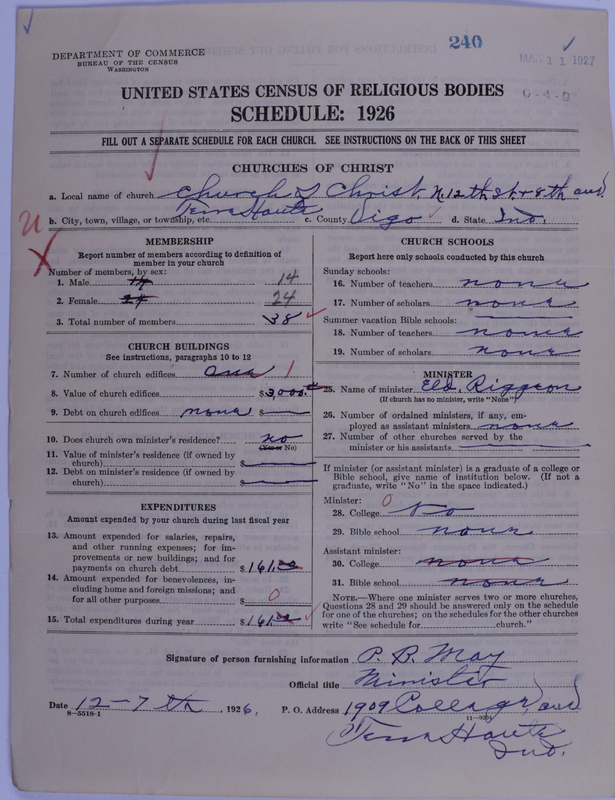 240
MAR 11 1927
DEPARTMENT OF COMMERCE
BUREAU OF THE CENSUS
WASHINGTON
UNITED STATES CENSUS OF RELIGIOUS BODIES
SCHEDULE: 1926
FILL OUT A SEPARATE SCHEDULE FOR EACH CHURCH. SEE INSTRUCTIONS ON THE BACK OF THIS SHEET
CHURCHES OF CHRIST
a. Local name of church Church of Christ N. 12th St & 8th ave.
b. City, town, village, or township, etc. Terre Haute c. County Vigo d. State Ind.
MEMBERSHIP
Report number of members according to definition of
member in your church
Number of members, by sex:
1. Male 14 14
2. Female 24 24
3. Total number of members 38
CHURCH BUILDINGS
See instructions, paragraphs 10 to 12
7. Number of church edifices one 1
8. Value of church edifices $3,000.
9. Debt on church edifices none $
10. Does church own minister's residence? no
(Yes or No)
11. Value of minister's residence (if owned by
church) $
12. Debt on minister's residence (if owned by
church) $
EXPENDITURES
Amount expended by your church during last fiscal year
13. Amount expended for salaries, repairs,
and other running expenses; for im-
provements or new buildings; and for
payments on church debt $161.
14. Amount expended for benevolences, in-
cluding home and foreign missions; and
for all other purposes $ 0
15. Total expenditures during year $161.
CHURCH SCHOOLS
Report here only schools conducted by this church
Sunday schools:
16. Number of teachers none
17. Number of scholars none
Summer vacation Bible schools:
18. Number of teachers none
19. Number of scholars none
MINISTER
25. Name of minister Eld. Riggeon
(If church has no minister, write "None")
26. Number of ordained ministers, if any, em-
ployed as assistant ministers none
27. Number of other churches served by the
minister or his assistants
If minister (or assistant minister) is a graduate of a college or
Bible school, give name of institution below. (If not a
graduate, write "No" in the space indicated.)
Minister: 0
28. College No
29. Bible school none
Assistant minister:
30. College none
31. Bible school none
NOTE.—Where one minister serves two or more churches,
Questions 28 and 29 should be answered only on the schedule
for one of the churches; on the schedules for the other churches
write "See schedule for church."
Signature of person furnishing information P. B. May
Official title Minister
Date 12-7th, 1926. P. O. Address 1909 College ave
8-5518-1
Terre Haute
Ind.